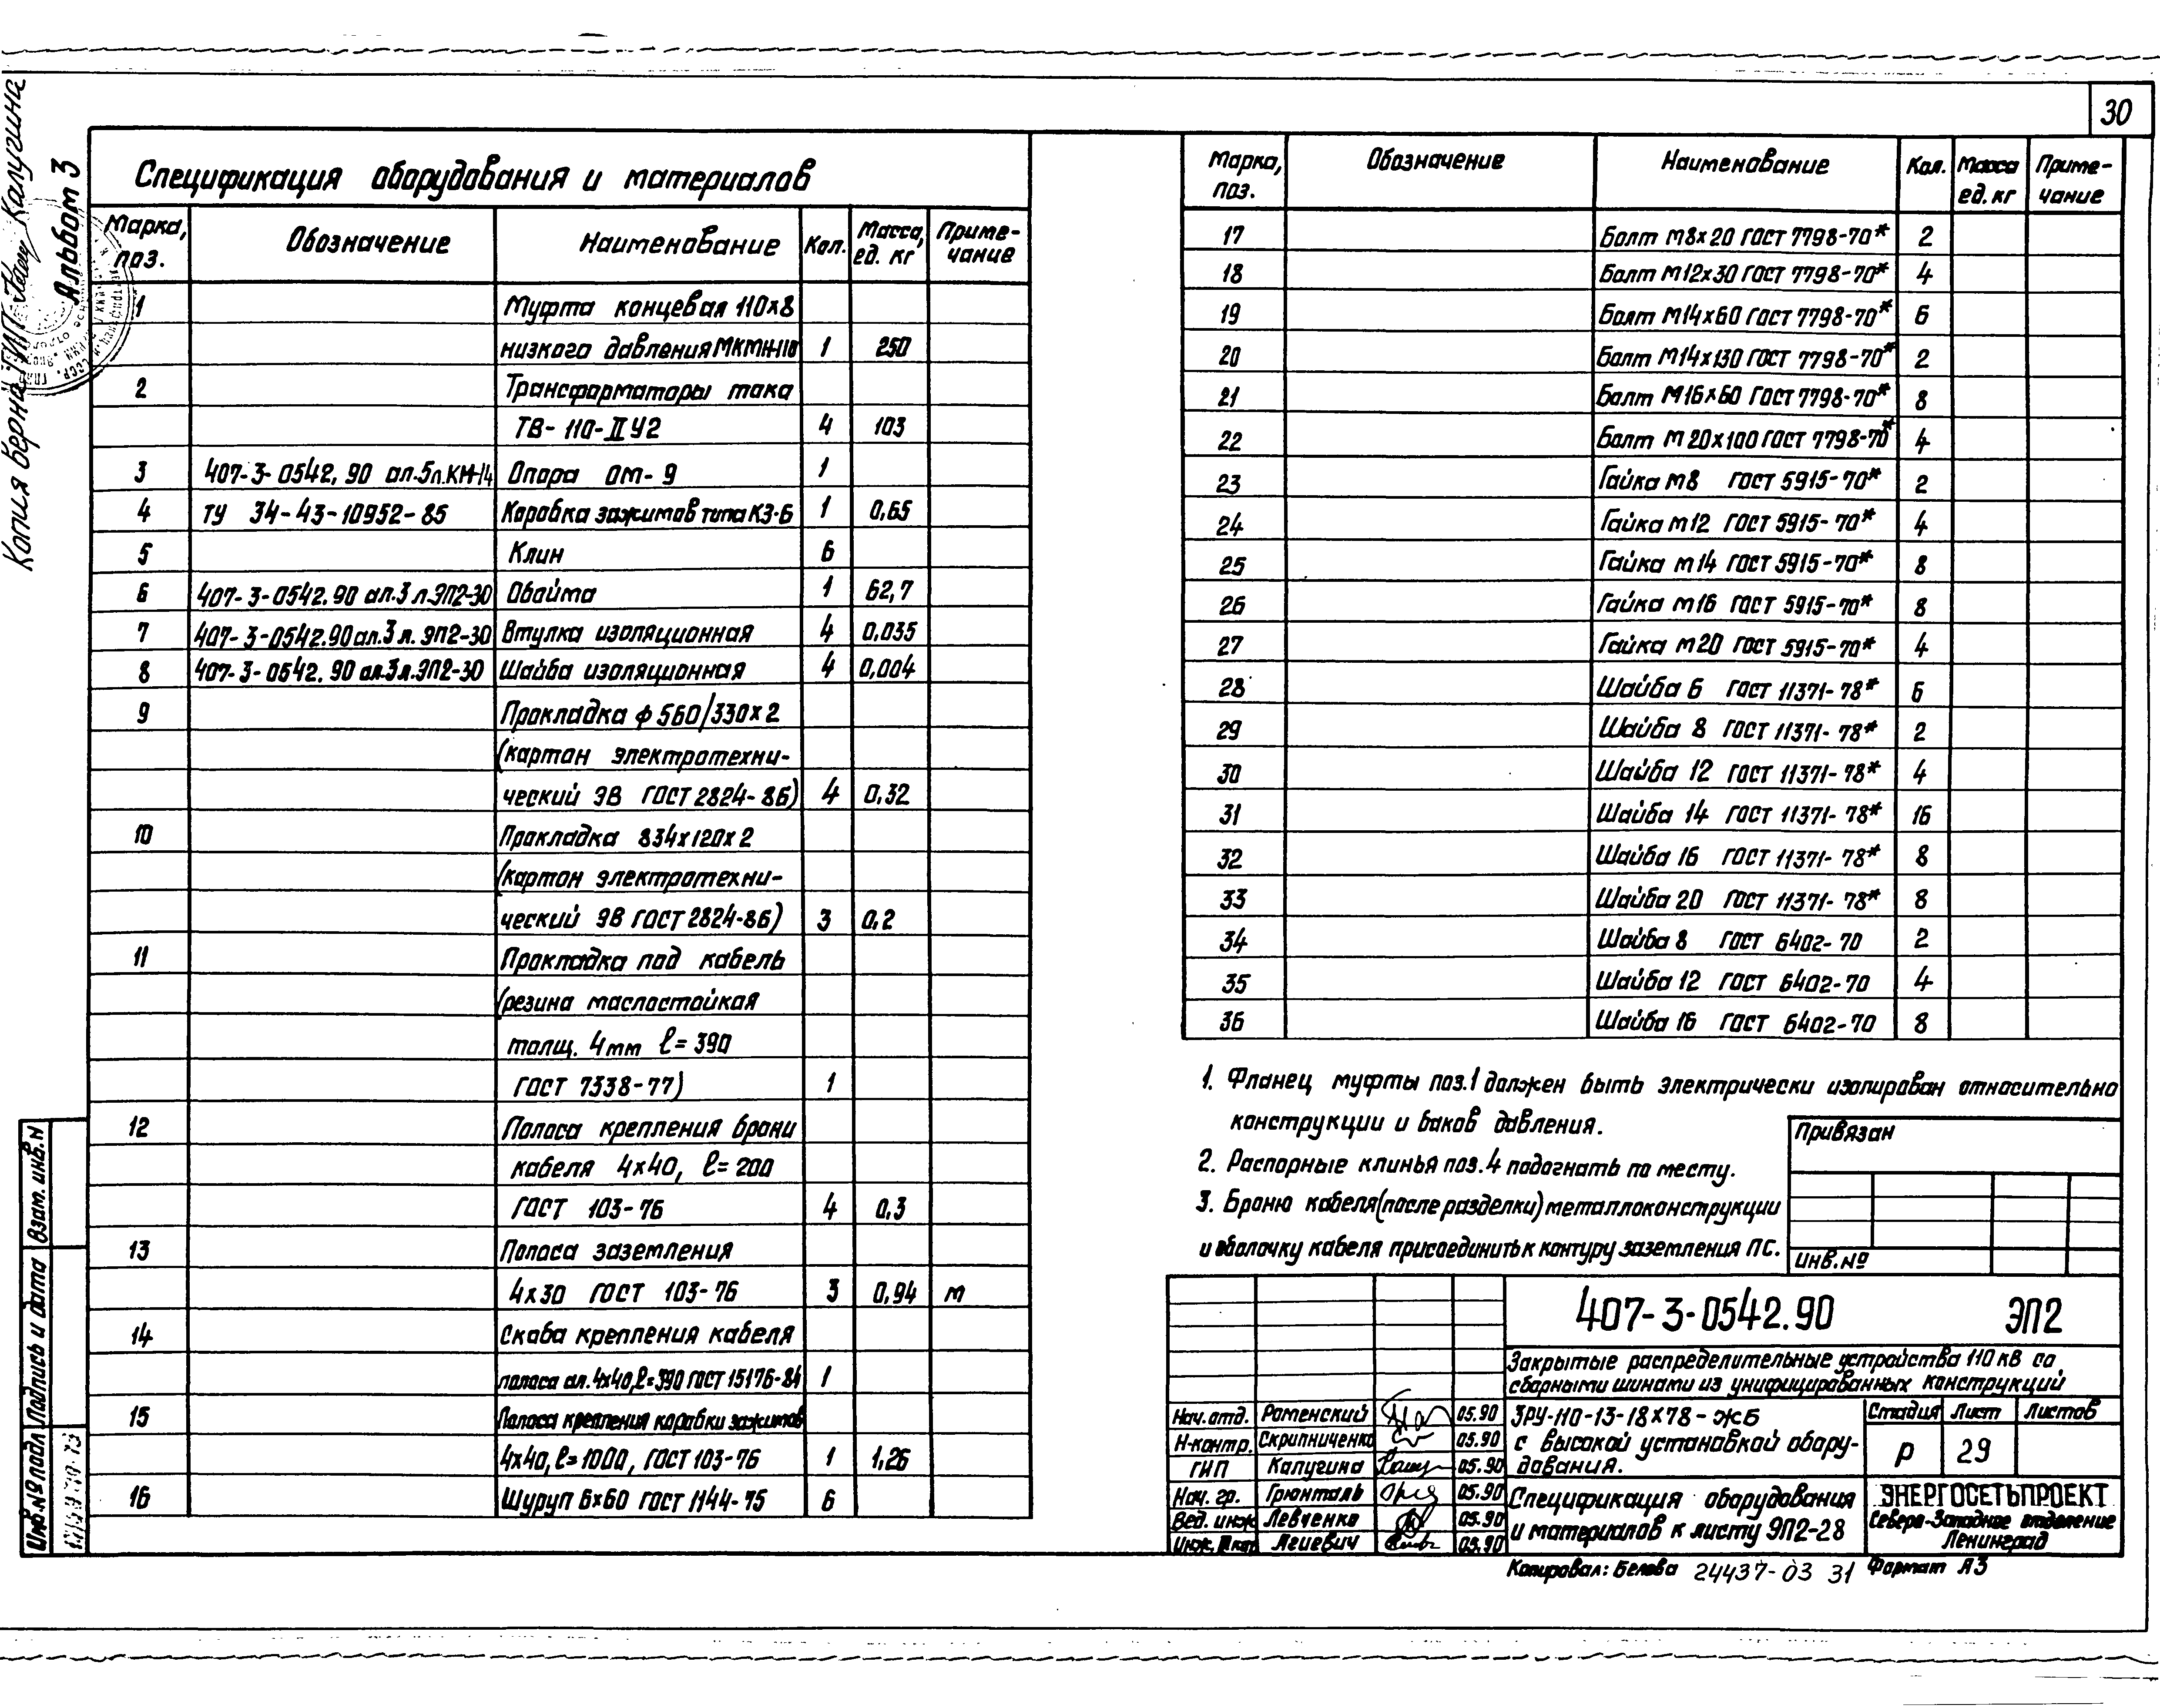 30
Копия верна ГИП Калугина
Альбом 3
Спецификация оборудования и материалов
Марка, поз. Обозначение Наименование Кол. Масса, ед. кг Приме-чание
1 Муфта концевая 110х8
низкого давления МКТН-110 1 250
2 Трансформаторы тока
ТВ-110-II У2 4 103
3 407-3-0542.90 ал.5 л.КМ-14 Опора ОМ-9 1
4 ТУ 34-43-10952-85 Коробка зажимов типа КЗ-6 1 0,65
5 Клин 6
6 407-3-0542.90 ал.3 л.ЭП2-30 Обойма 1 62,7
7 407-3-0542.90 ал.3 л.ЭП2-30 Втулка изоляционная 4 0,035
8 407-3-0542.90 ал.3 л.ЭП2-30 Шайба изоляционная 4 0,004
9 Прокладка ф560/330х2
(картон электротехни-
ческий ЭВ ГОСТ 2824-86) 4 0,32
10 Прокладка 834х120х2
(картон электротехни-
ческий ЭВ ГОСТ 2824-86) 3 0,2
11 Прокладка под кабель
(резина маслостойкая
толщ. 4мм ℓ=390
ГОСТ 7338-77) 1
12 Полоса крепления брони
кабеля 4х40, ℓ=200
ГОСТ 103-76 4 0,3
13 Полоса заземления
4х30 ГОСТ 103-76 3 0,94 м
14 Скоба крепления кабеля
полоса ал. 4х40, ℓ=390 ГОСТ 15176-84 1
15 Полоса крепления коробки зажимов
4х40, ℓ=1000, ГОСТ 103-76 1 1,26
16 Шуруп 6х60 ГОСТ 1144-75 6
Марка, поз. Обозначение Наименование Кол. Масса ед. кг Приме-чание
17 Болт М8х20 ГОСТ 7798-70* 2
18 Болт М12х30 ГОСТ 7798-70* 4
19 Болт М14х60 ГОСТ 7798-70* 6
20 Болт М14х130 ГОСТ 7798-70* 2
21 Болт М16х60 ГОСТ 7798-70* 8
22 Болт М20х100 ГОСТ 7798-70* 4
23 Гайка М8 ГОСТ 5915-70* 2
24 Гайка М12 ГОСТ 5915-70* 4
25 Гайка М14 ГОСТ 5915-70* 8
26 Гайка М16 ГОСТ 5915-70* 8
27 Гайка М20 ГОСТ 5915-70* 4
28 Шайба 6 ГОСТ 11371-78* 6
29 Шайба 8 ГОСТ 11371-78* 2
30 Шайба 12 ГОСТ 11371-78* 4
31 Шайба 14 ГОСТ 11371-78* 16
32 Шайба 16 ГОСТ 11371-78* 8
33 Шайба 20 ГОСТ 11371-78* 8
34 Шайба 8 ГОСТ 6402-70 2
35 Шайба 12 ГОСТ 6402-70 4
36 Шайба 16 ГОСТ 6402-70 8
1. Фланец муфты поз.1 должен быть электрически изолирован относительно
конструкции и баков давления.
2. Распорные клинья поз.4 подогнать по месту.
3. Броню кабеля (после разделки) металлоконструкции
и оболочку кабеля присоединить к контуру заземления ПС.
Привязан
Инв.№
407-3-0542.90 ЭП2
Закрытые распределительные устройства 110 кВ со
сборными шинами из унифицированных конструкций
Нач.отд. Роменский 05.90
Н-контр. Скрипниченко 05.90
ГИП Калугина 05.90
Нач. гр. Грюнталь 05.90
Вед. инж Левченко 05.90
Инж. II кат Легевич 05.90
ЗРУ-110-13-18х78-ЖБ
с высокой установкой обору-
дования.
Стадия Лист Листов
Р 29
Спецификация оборудования
и материалов к листу ЭП2-28
ЭНЕРГОСЕТЬПРОЕКТ
Северо-Западное отделение
Ленинград
Копировал: Белова 24437-03 31 Формат А3
Взам. инв.N
Подпись и дата
Инв.№ подл.